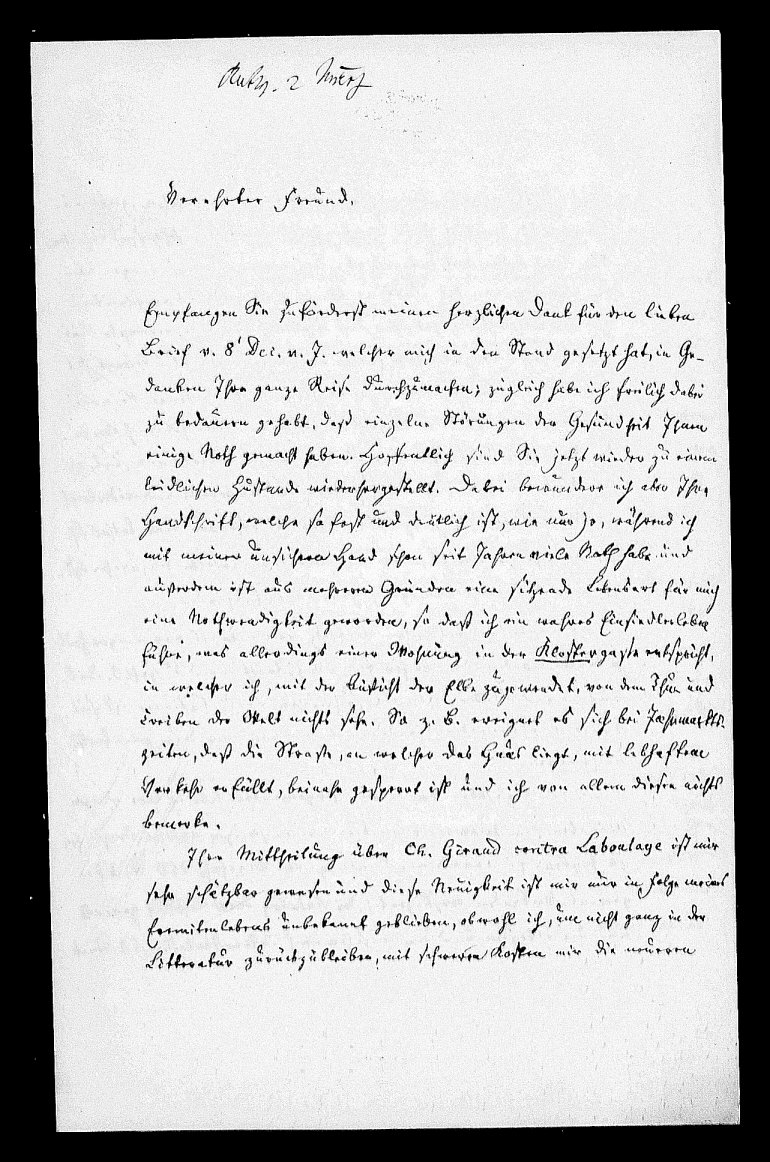 Antw. 2 März
Verehrter Freund,
Empfangen Sie zuförderst meinen herzlichen Dank für den lieben
Brief v. 8' Dec. v. J. welcher mich in den Stand gesetzt hat, in Ge-
danken Ihre ganze Reise durchzumachen; zugleich habe ich freilich dabei
zu bedauern gehabt, daß einzelne Störungen der Gesundheit Ihnen
einige Noth gemacht haben. Hoffentlich sind Sie jetzt wieder zu einem
leidlichen Zustande wiederhergestellt. Dabei bewundere ich aber Ihre
Handschrift, welche so fest und deutlich ist, wie nur je, während ich
mit meiner unsichern Hand schon seit Jahren viele Noth habe und
außerdem ist aus mehreren Gründen eine sitzende Lebensart für mich
eine Nothwendigkeit geworden, so daß ich ein wahres Einsiedlerleben
führe, was allerdings einer Wohnung in der Klostergasse entspricht,
in welcher ich, mit der Aussicht der Elbe zugewendet, von dem Thun und
Treiben der Welt nichts sehe. So z. B. ereignet es sich bei Jahrmarkts-
zeiten, daß die Straße, an welcher das Haus liegt, mit lebhaftem
Verkehr erfüllt, beinahe gesperrt ist und ich von allem diesen nichts
bemerke.
Ihre Mittheilung über Ch. Giraud contra Laboulaye ist mir
sehr schätzbar gewesen und diese Neuigkeit ist mir nur in Folge meines
Eremitenlebens unbekannt geblieben, obwohl ich, um nicht ganz in der
Litteratur zurückzubleiben, mit schweren Kosten mir die neueren